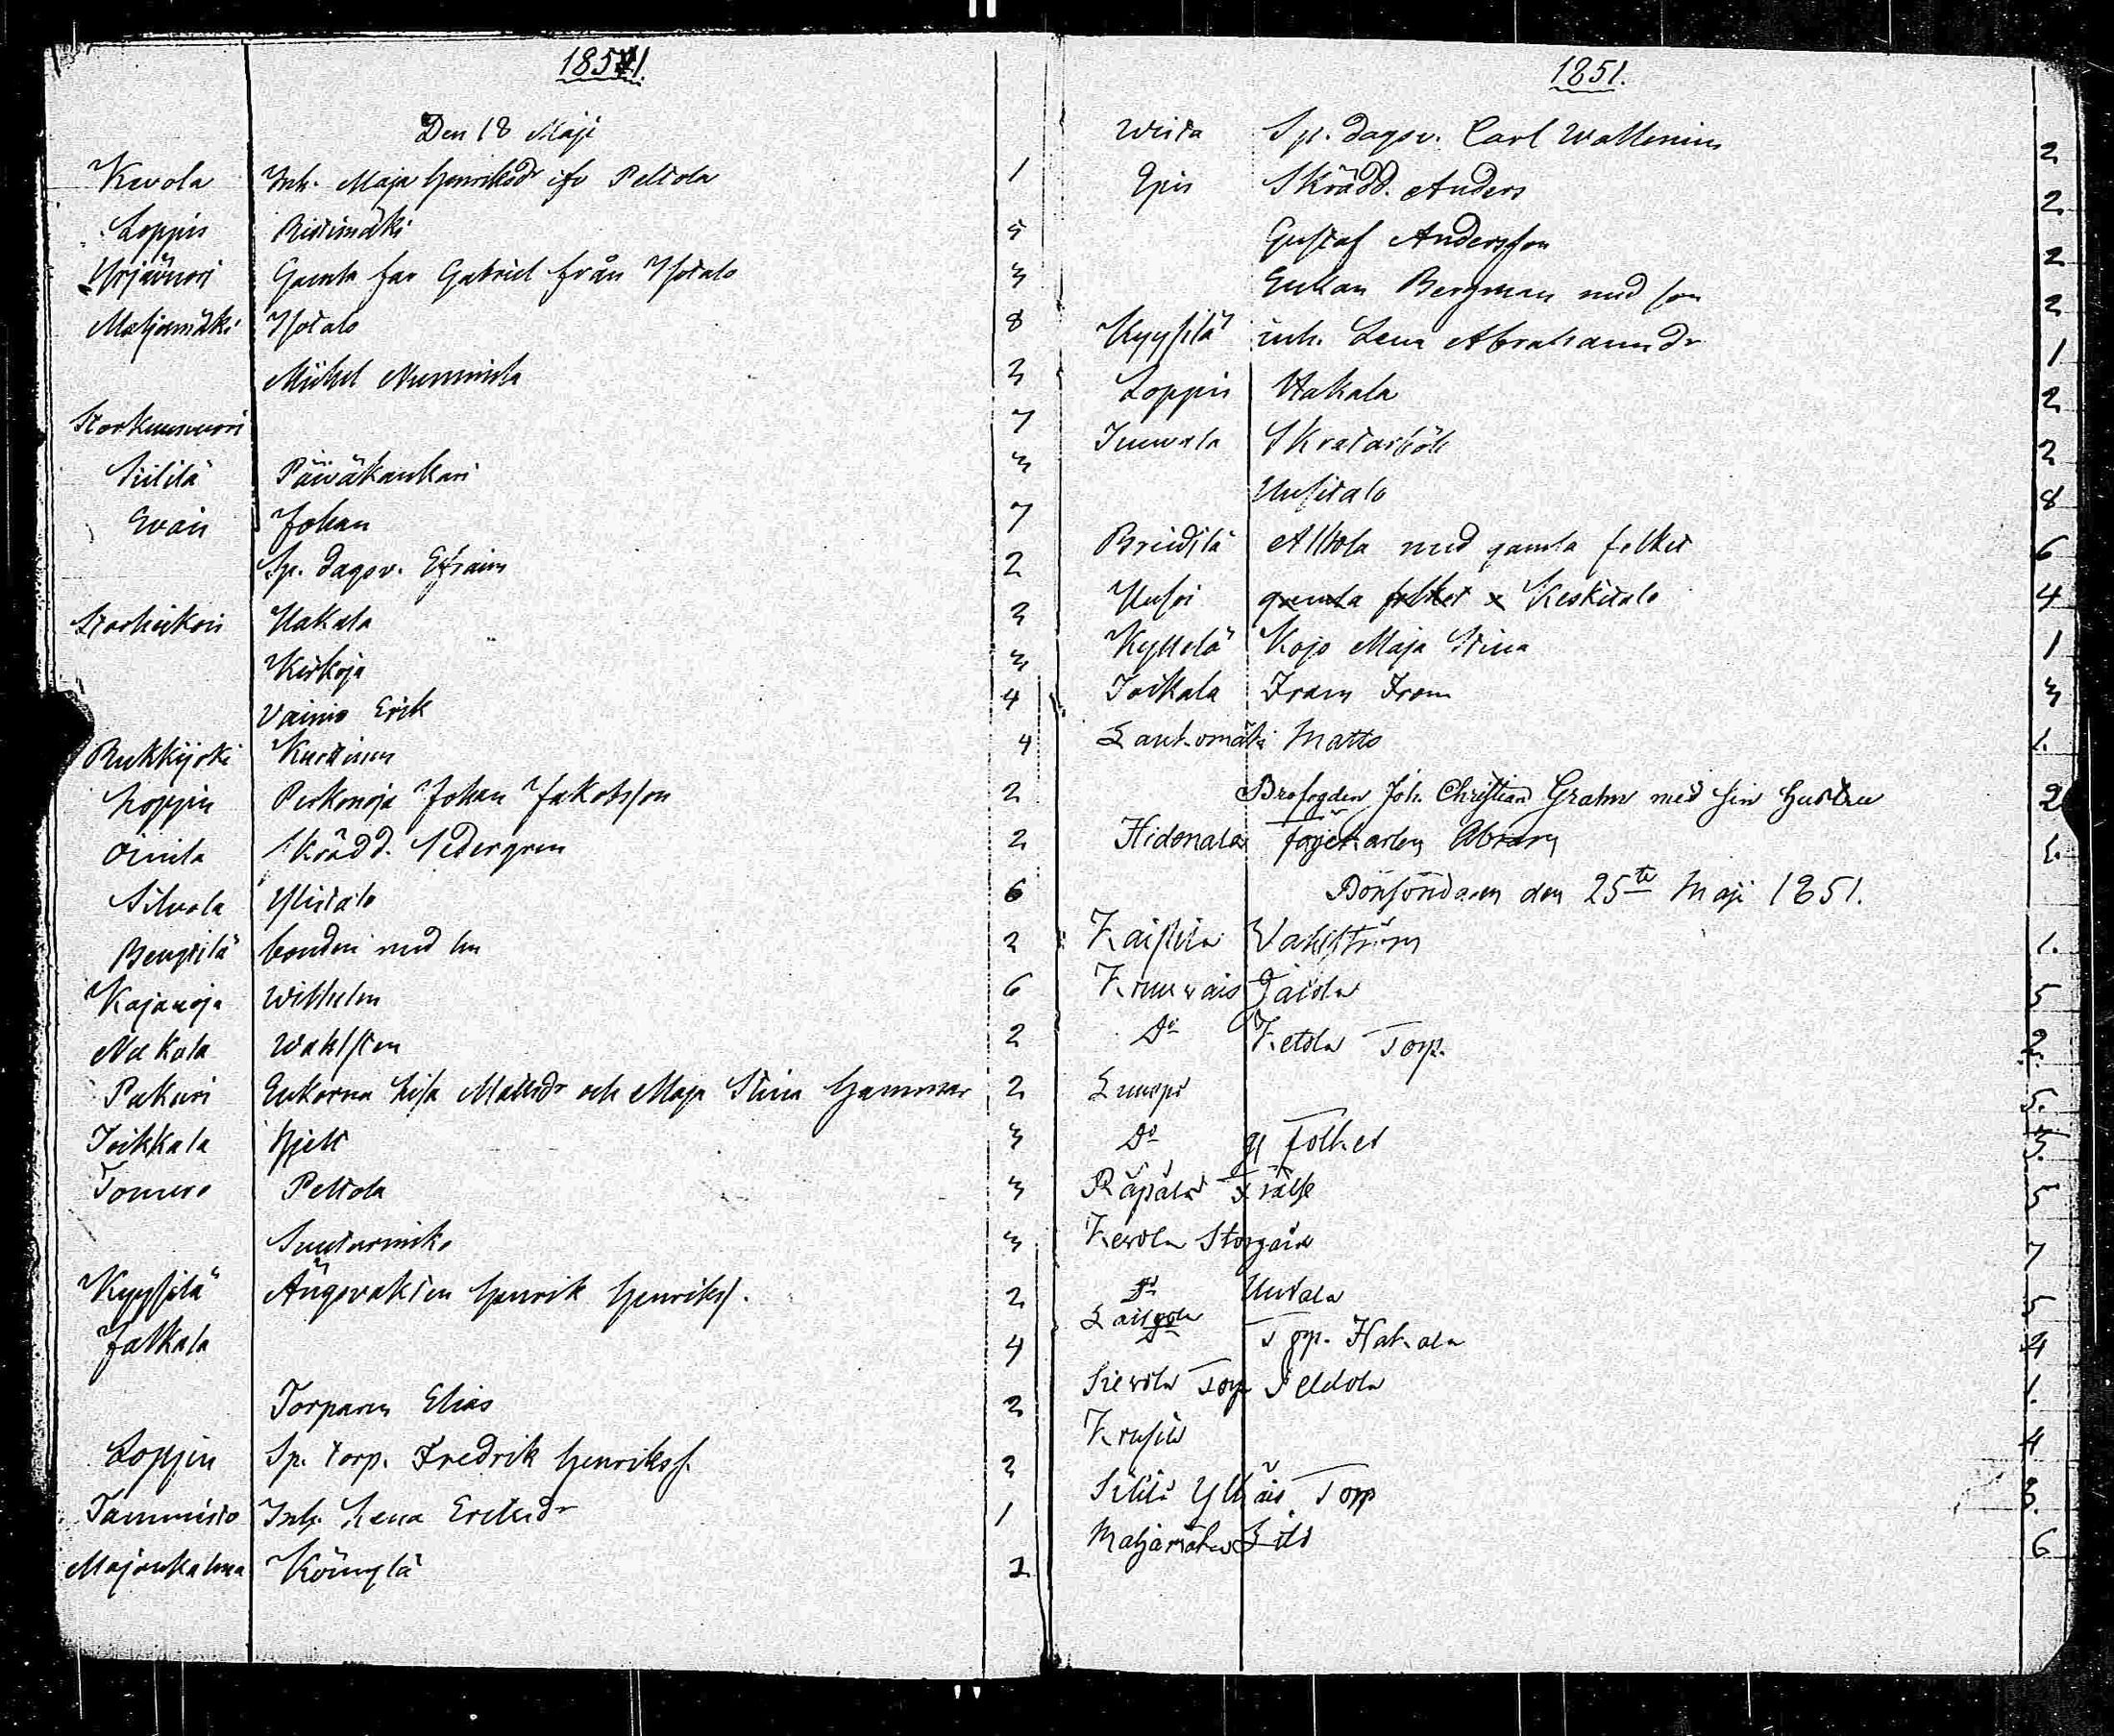 1851.
Den 18 Maji
Kevola Inh. Maja Henriksdr ifr Peltola 1
Loppis Ristimäki 5
Yrjänuori Gamla far Gabriel från Isotalo 3
Maljamäki Isotalo 8
Michel Numminla 2
Storkuusvuori 7
Siilitä Päiväkankari 3
Eväis Johan 7
Sp. dagsv. Efraim 2
Storheikoi Hakala 2
Kirkoja 3
Vainio Erik 4
Rukkijoki Kurkinen 4
Loppis Perkonoja Johan Jakobsson 2
Oinila Skrädd. Sedergren 2
Silvola Ylistalo 6
Bengtilä bonden med hu 2
Kajanoja Wilhelm 6
Nokola Wahlsten 2
Pakuri Enkorna Lisa Mattsdr och Maja Stina Hammar 2
Joikkala Hjelt 3
Tomero Peltola 3
Suutarinik 3
Kyysilä Ängsvakten Henrik Henrikss. 2
Jalkala 4
Torparen Elias 2
Loppis Sp. torp. Fredrik Henrikss. 2
Tammisto Inh. Lena Ericksdr 1
Majankalma Köinylä 2
1851.
Wista Sp. dagsv. Carl Wallenius 2
Epis Skrädd. Anders 2
Gustaf Andersson 2
Enkan Bergman med son 2
Kyysilä inh. Lena Abrahamsdr 1
Loppis Hakala 2
Junnala Skratarböle 2
Uusitalo 8
Brinditä Alitola med gamla folket 6
Uusoi gamla folket x Keskitalo 4
Kyttälä Kojo Maja Stina 1
Joikala Fram From 3
Lauhomäki Matts 1.
Brofogden Joh. Christian Grahn med sin Hustru 2
Hidenala Abram 1.
Bönsöndagen den 25te Maji 1851.
Kaisila Vahlström 1.
Knuuvais Jaiola 5
Do Ketola Torp. 2.
Lumpi 5.
Do gl Folket 3.
Räpälä Frälse 5
Kevola Storgård 7
Do Uutala 5
Do Torp. Hakala 4
Sievola Torp Peldola 1.
Krusila 4
Torp 3.
Maljamäki 6